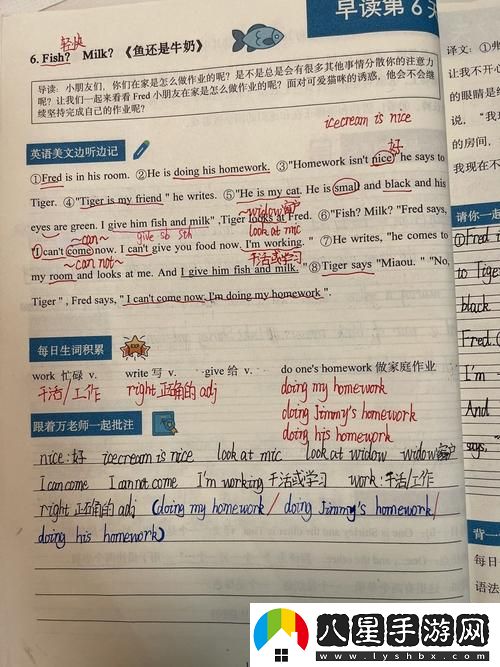 早读第 6 天
轻快
6. Fish? Milk? 《鱼还是牛奶》
导读：小朋友们，你们在家是怎么做作业的呢？是不是总是会有很多其他事情分散你的注意力
呢？让我们一起来看看 Fred 小朋友在家是怎么做作业的呢？面对可爱猫咪的诱惑，他会不会继
续坚持完成自己的作业呢？
icecream is nice
英语美文边听边记
好
①Fred is in his room. ②He is doing his homework. ③"Homework isn't nice," he says to
Tiger. ④"Tiger is my friend " he writes. ⑤"He is my cat. He is small and black and his
eyes are green. I give him fish and milk" ,Tiger looks at Fred. ⑥"Fish? Milk? "Fred says,
~can~
give sb sth
~widow窗户
look at mic
"I can't come now. I can't give you food now. I'm working. " ⑦He writes, "he comes to
~can not~
干活或学习
my room and looks at me. And I give him fish and milk. "⑧Tiger says "Miaou. " "No,
Tiger " , Fred says, " I can't come now. I'm doing my homework ".
每日生词积累
work 忙碌 v. write 写 v. give 给 v. do one's homework 做家庭作业
干活/工作 right 正确的 adj doing my homework
doing Jimmy's homework
doing his homework
跟着万老师一起批注
nice:好 icecream is nice look at mic look at widow widow窗户
I can come I can not come I'm working 干活或学习 work:干活/工作
right 正确的 adj (doing my homework/ doing Jimmy's homework/
doing his homework)
译文：①弗
让我不开心
的眼睛是绿
说，"我现
的房间，
我现在不
请你一起
①Fred is
to Tiger
black
Fred.
I'm
And
says,
背一
每日
语法
八星手游网
www.lyshbx.com